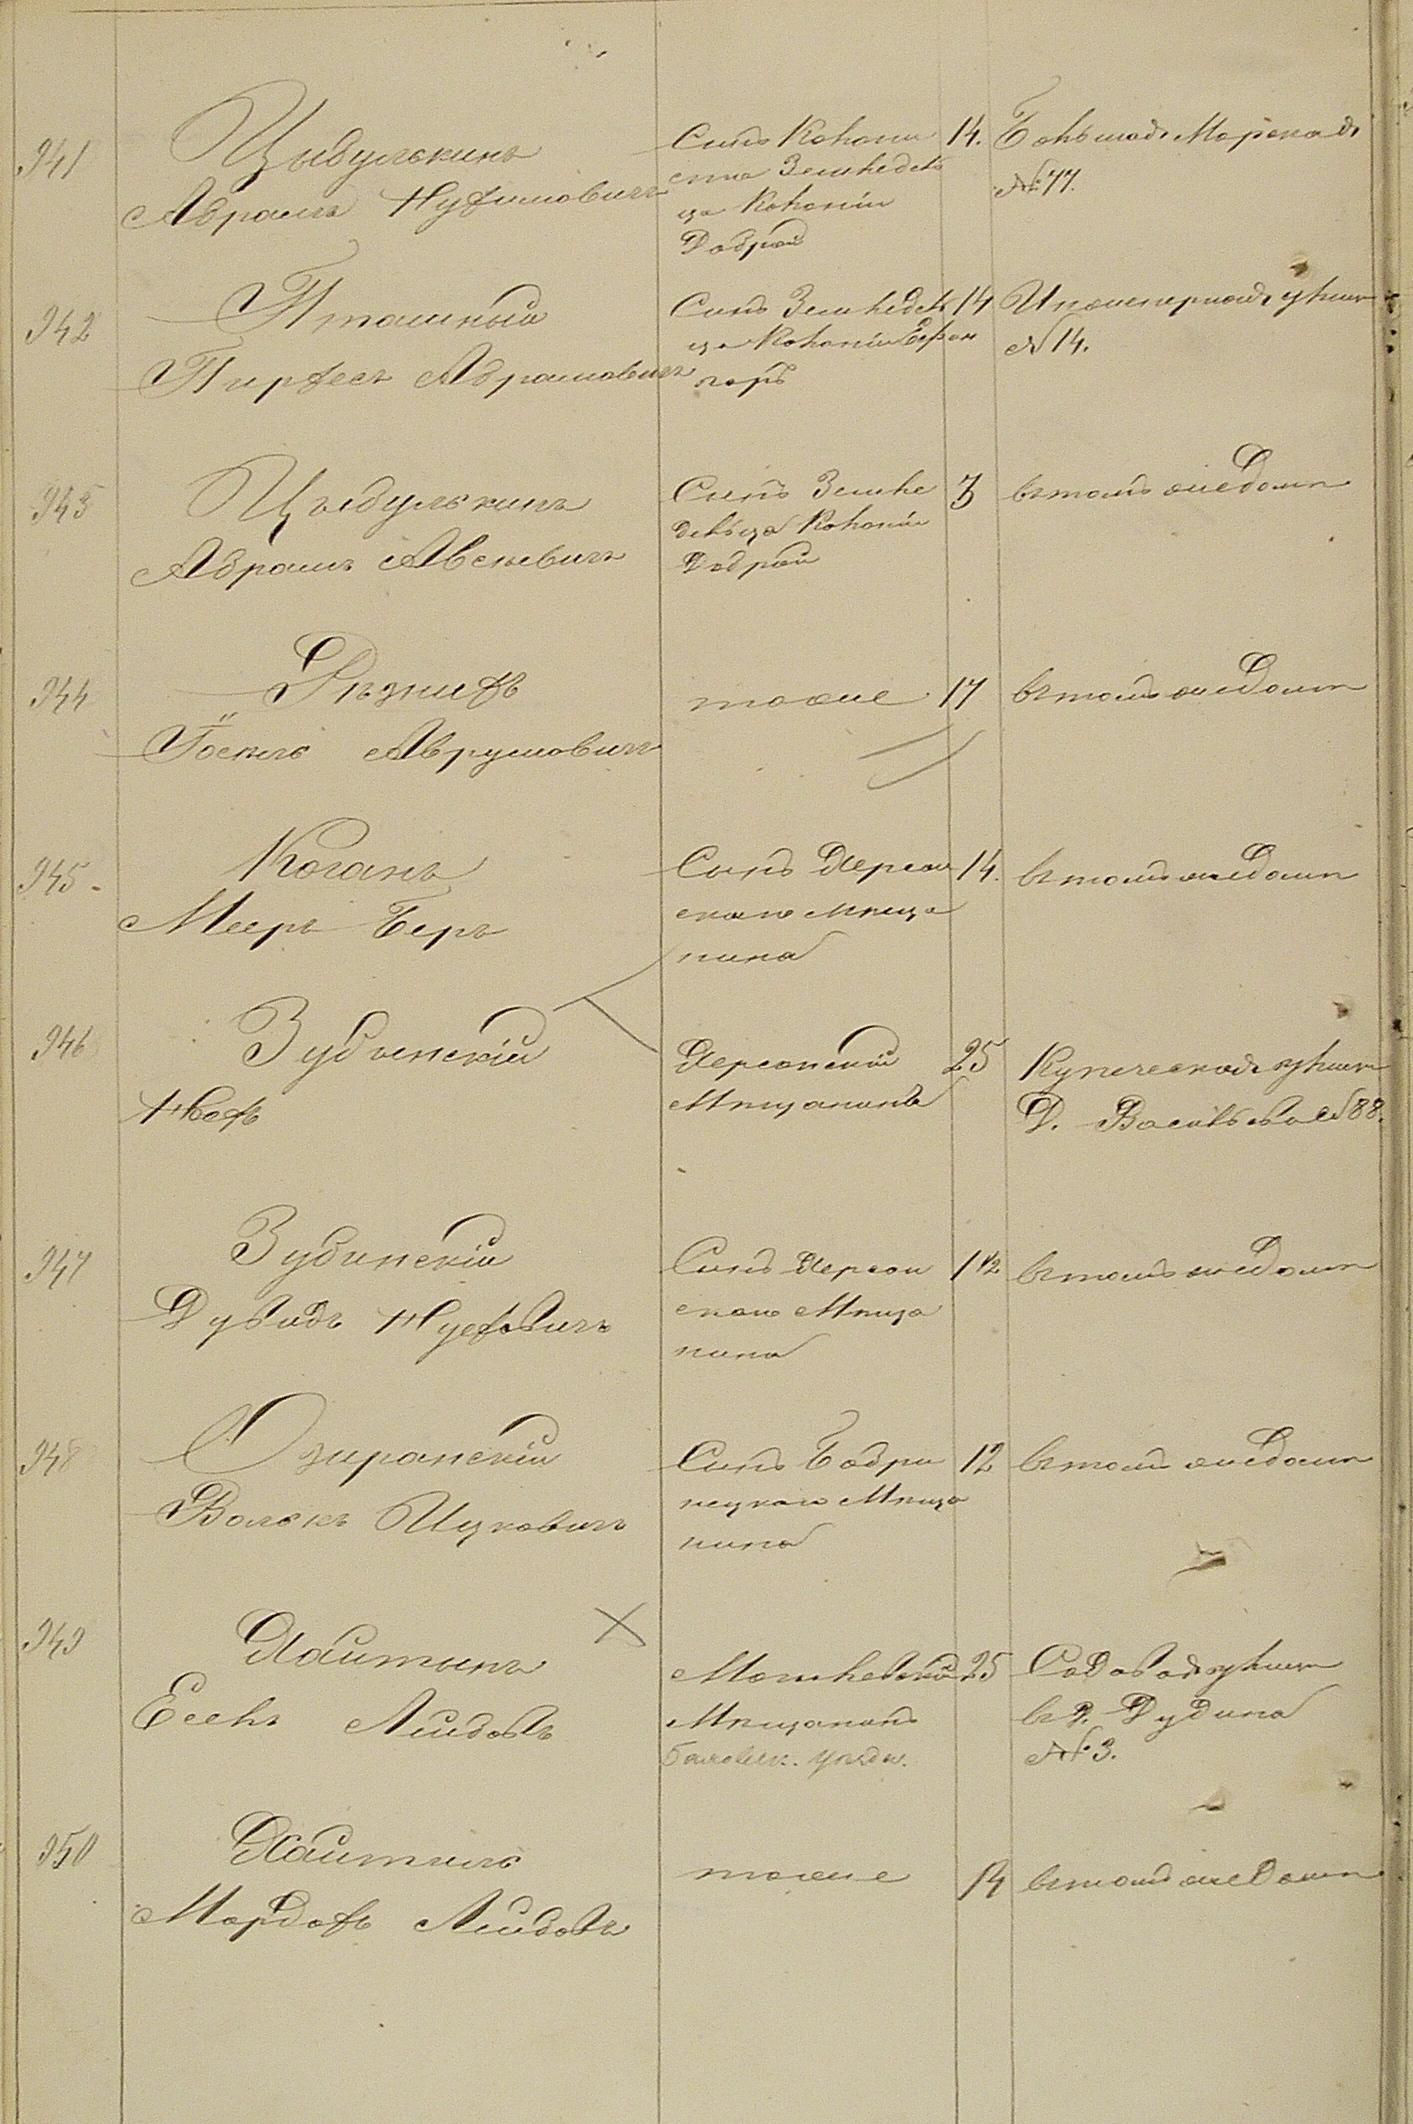 941
Цыбулькинъ
Абрамъ Нухимовичъ
Сынъ Колони
ста Земледѣль
ца Колоніи
Доброй
14.
Большая Морская д.
№ 77.
942
Пташный
Абрамовичъ
Сынъ Земледѣль
ца Колоніи Ефен
гаръ
14
улица
№ 14.
943
Цыбулькинъ
Абрамъ
Сынъ Земле
дѣльца Колоніи
Доброй
3
въ томъ же домѣ
944
Рѣзникъ
Іосель Аврумовичъ
тоже
17
въ томъ же домѣ
945.
Коганъ
Мееръ Беръ
Сынъ Херсон
скаго Мѣща
нина
14.
въ томъ же домѣ
946
Зубинскій
Херсонскій
Мѣщанинъ
25
Купеческая улица
Д. Васильева № 88.
947
Зубинскій
Дувидъ
Сынъ Херсон
скаго Мѣща
нина
1 1/2
въ томъ же домѣ
948
Озиранскій
Волькъ Ицковичъ
Сынъ Бобри
нецкаго Мѣща
нина
12
въ томъ же домѣ
949
Хаитинъ
Есель Лейбовъ
Могилевскій
Мѣщанинъ
уѣзда.
25
Садовая улица
въ д. Дубина
№ 3.
950
Хаитинъ
Мордохъ Лейбовъ
тоже
14
въ томъ же домѣ